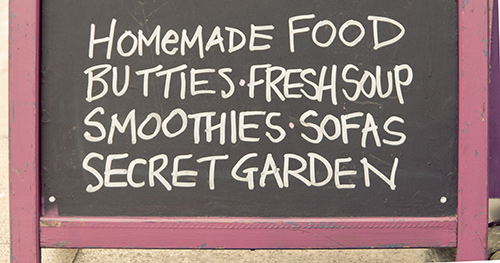 HOMEMADE FOOD
BUTTIES · FRESH SOUP
SMOOTHIES · SOFAS
SECRET GARDEN